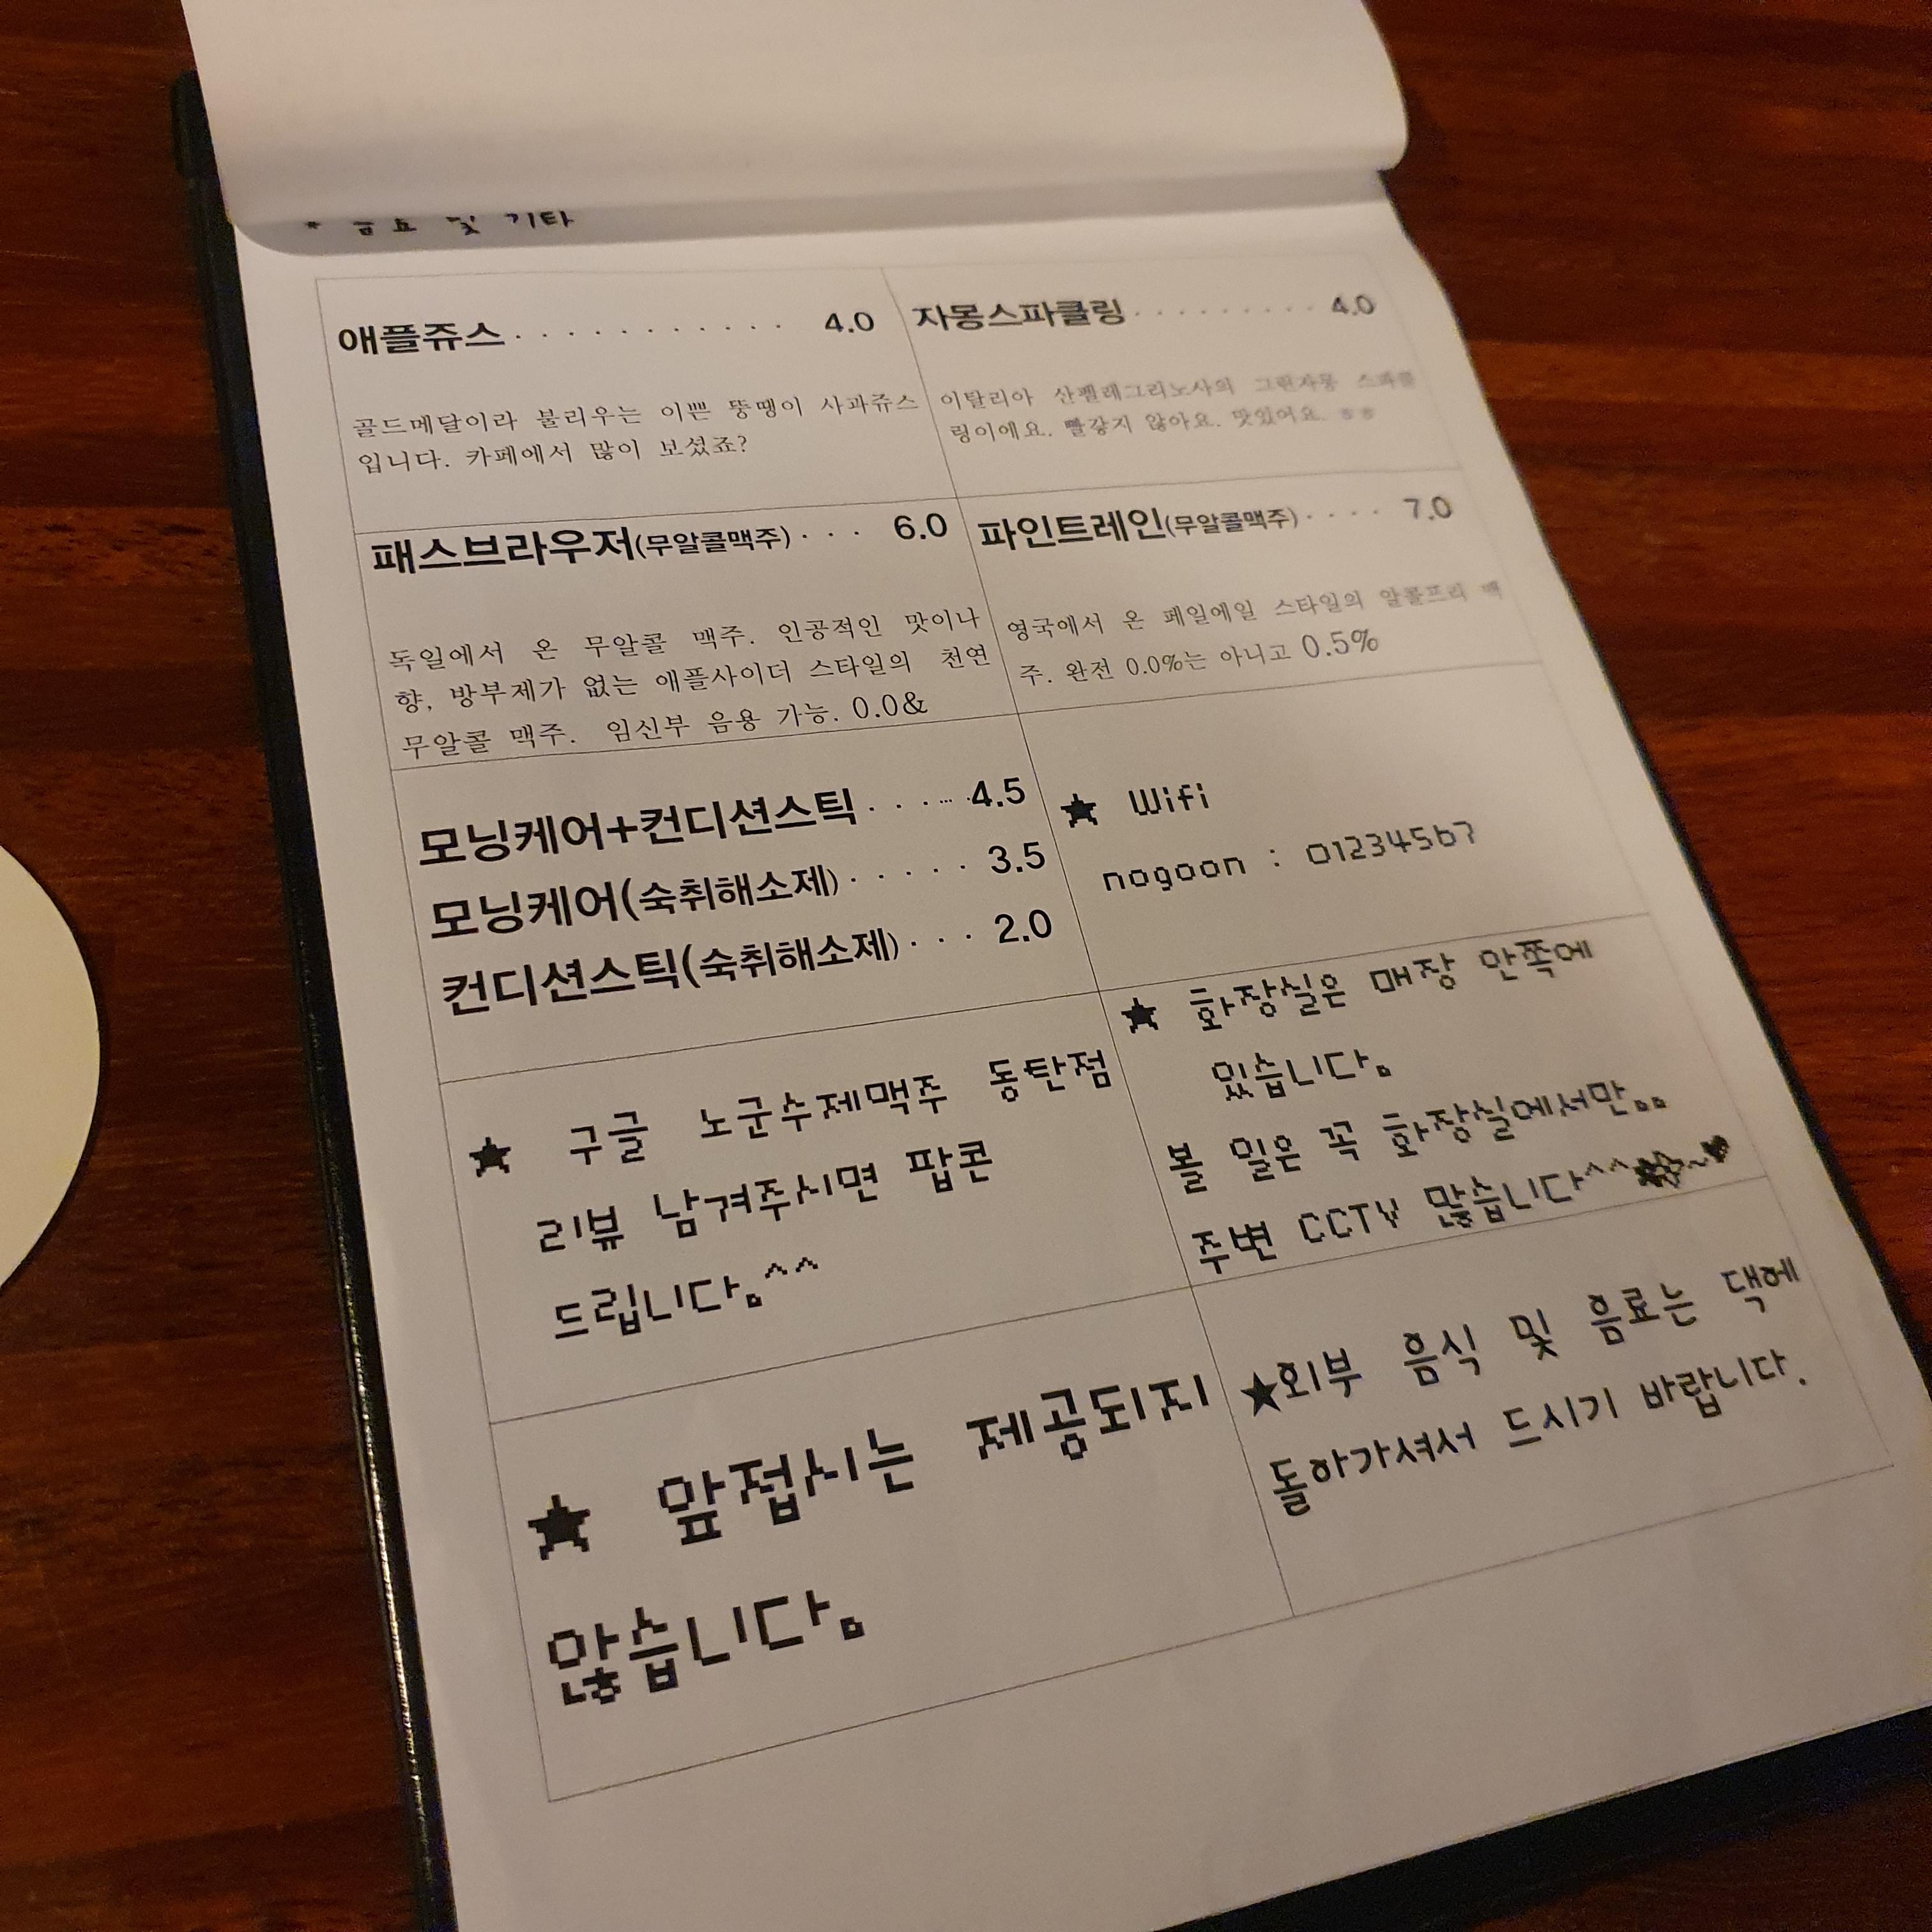 * 음료 및 기타
애플쥬스 · · · · · · · · · · · 4.0
골드메달이라 불리우는 이쁜 뚱땡이 사과쥬스
입니다. 카페에서 많이 보셨죠?
자몽스파클링 · · · · · · · · · 4.0
이탈리아 산펠레그리노사의 그린자몽 스파클
링이에요. 빨갛지 않아요. 맛있어요. ㅎㅎ
패스브라우저(무알콜맥주) · · · 6.0
독일에서 온 무알콜 맥주. 인공적인 맛이나
향, 방부제가 없는 애플사이더 스타일의 천연
무알콜 맥주. 임신부 음용 가능. 0.0&
파인트레인(무알콜맥주) · · · · 7.0
영국에서 온 페일에일 스타일의 알콜프리 맥
주. 완전 0.0%는 아니고 0.5%
모닝케어+컨디션스틱 · · · … · 4.5
모닝케어(숙취해소제) · · · · · 3.5
컨디션스틱(숙취해소제) · · · 2.0
★ Wifi
nogoon : 01234567
★ 구글 노군수제맥주 동탄점
리뷰 남겨주시면 팝콘
드립니다。^^
★ 화장실은 매장 안쪽에
있습니다。
볼 일은 꼭 화장실에서만。。
주변 CCTV 많습니다^^★☆~♥
★ 앞접시는 제공되지
않습니다。
★외부 음식 및 음료는 댁에
돌아가셔서 드시기 바랍니다.